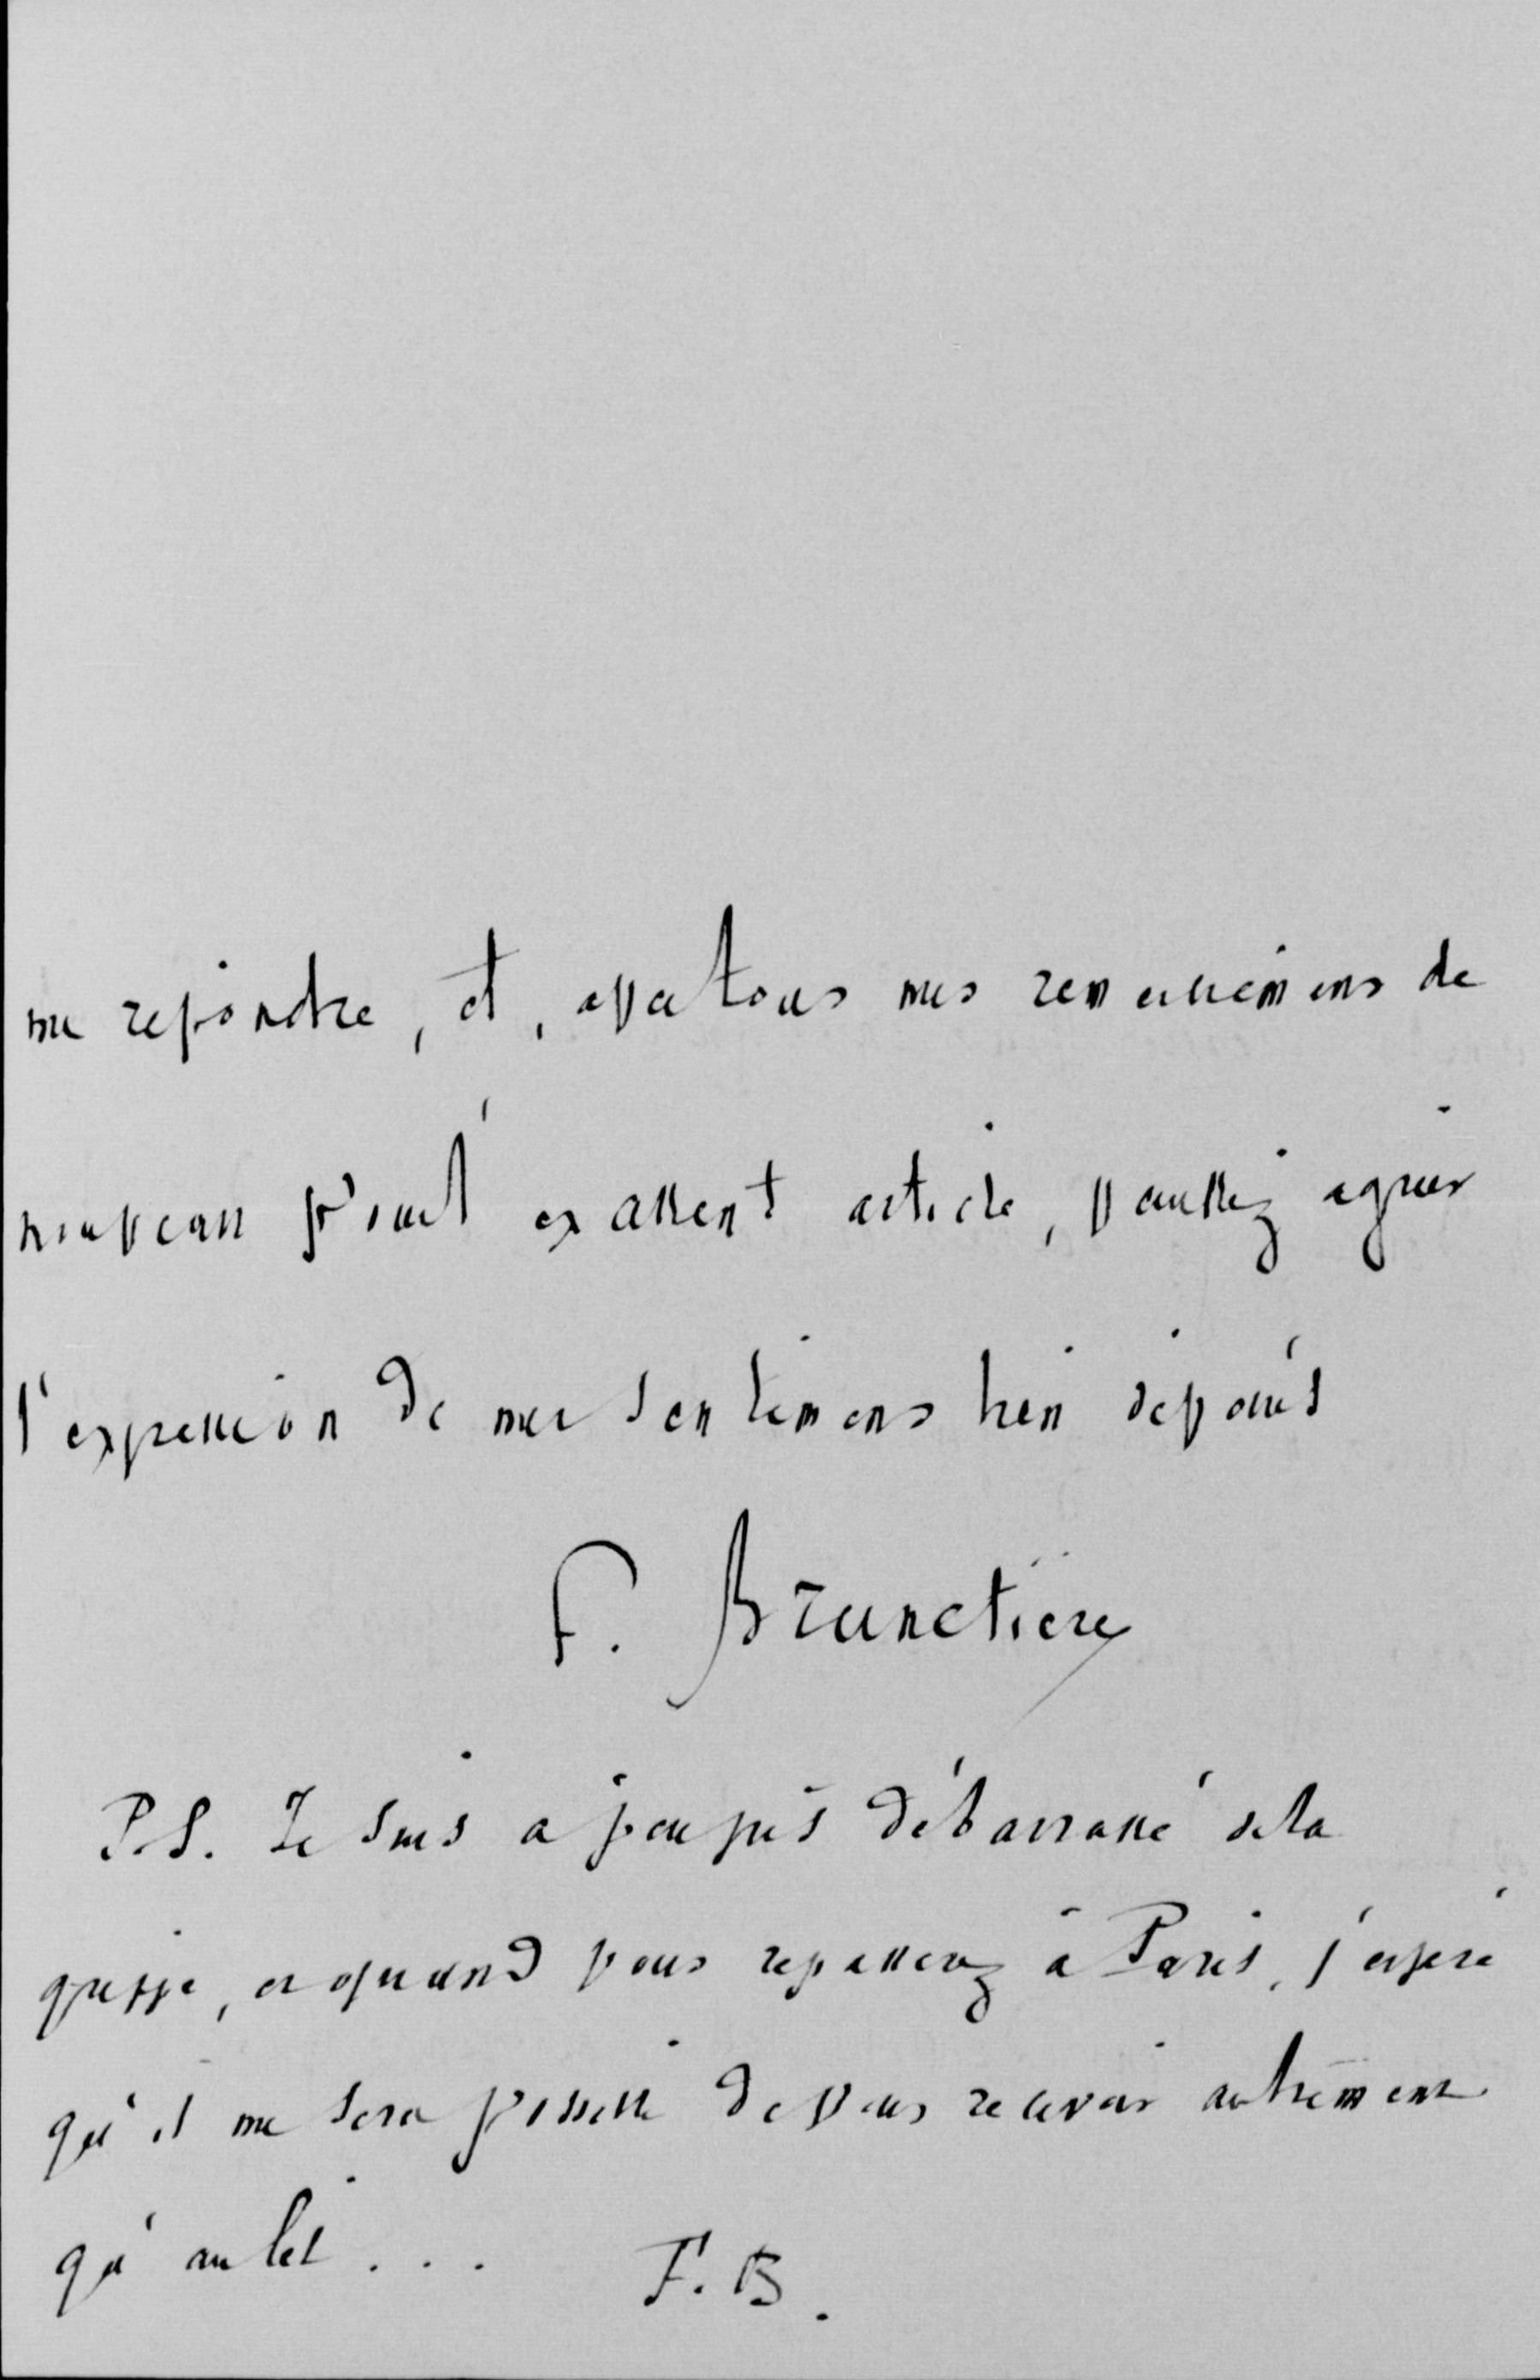 me répondre, et, avec tous mes remerciemens de
nouveau pour l'excellent article, veuillez agréer
l'expression de mes sentimens bien dévoués
F. Brunetière
P.S. Je suis à peu près débarrassé de la
grippe, et quand vous repasserez à Paris, j'espère
qu'il me sera possible de vous recevoir autrement
qu'au lit...
F. B.